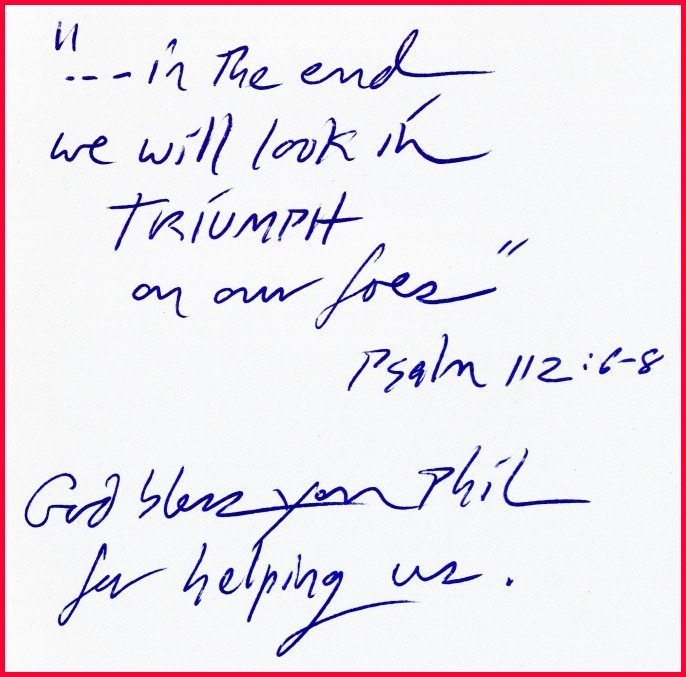 "...in the end
we will look in
TRIUMPH
on our foes"
Psalm 112:6-8
God bless you Phil
for helping us.